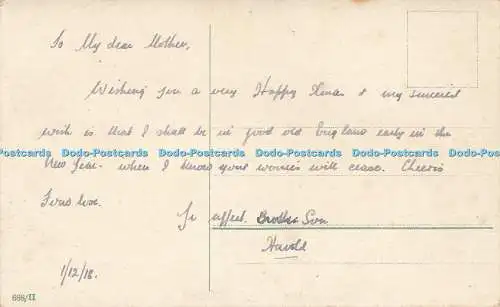 To My dear Mother,
Wishing you a very Happy Xmas & my sincerest
wish is that I shall be in good old England early in the
Dodo-Postcards Dodo-Postcards Dodo-Postcards Dodo-Postcards Dodo-Postcards Dodo-Postcards
New Year - when I know your worries will cease. Cheerio
Yr affect. Brother Son
Harold
1/12/18.
698/II